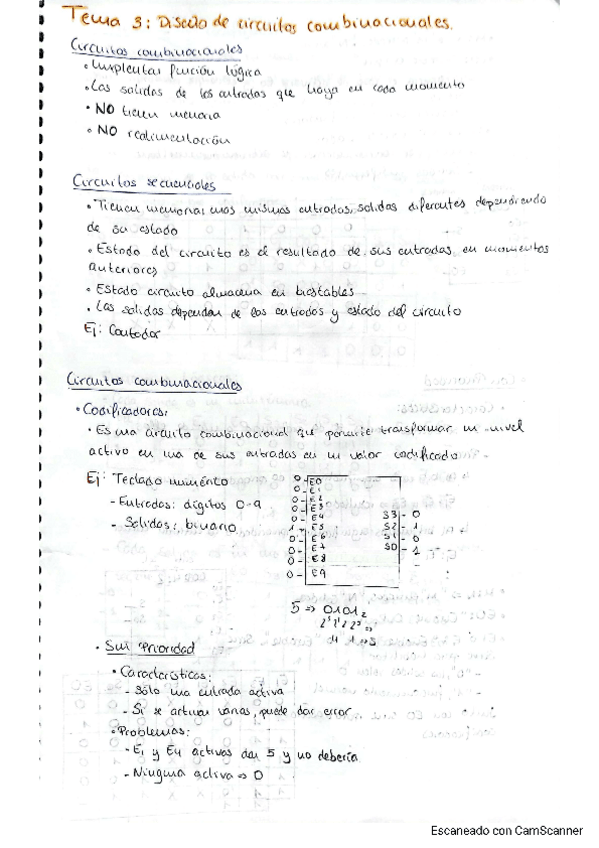 Tema 3: Diseño de circuitos combinacionales.
Circuitos combinacionales
• Implentar función lógica
• Las salidas de las entradas que haya en cada momento
• NO tienen memoria
• NO realimentación
Circuitos secuenciales
• Tienen memoria: mismas entradas, salidas diferentes dependiendo
de su estado
• Estado del circuito es el resultado de sus entradas en momentos
anteriores
• Estado circuito almacena en biestables
• Las salidas dependen de las entradas y estado del circuito
Ej: Contador
Circuitos combinacionales
• Codificadores:
• Es un circuito combinacional que permite transformar un nivel
activo en una de sus entradas en un valor codificado
Ej: Teclado numérico
- Entradas: dígitos 0-9
- Salidas: binario
0 - E0
0 - E1
0 - E2
0 - E3
0 - E4
1 - E5
0 - E6
0 - E7
0 - E8
0 - E9
S3 - 0
S2 - 1
S1 - 0
S0 - 1
5 => 0101₂
• Sin Prioridad
• Características:
- Sólo una entrada activa
- Si se activan varias, puede dar error
• Problemas:
- E1 y E4 activas dan 5 y no debería
- Ninguna activa => 0
Escaneado con CamScanner